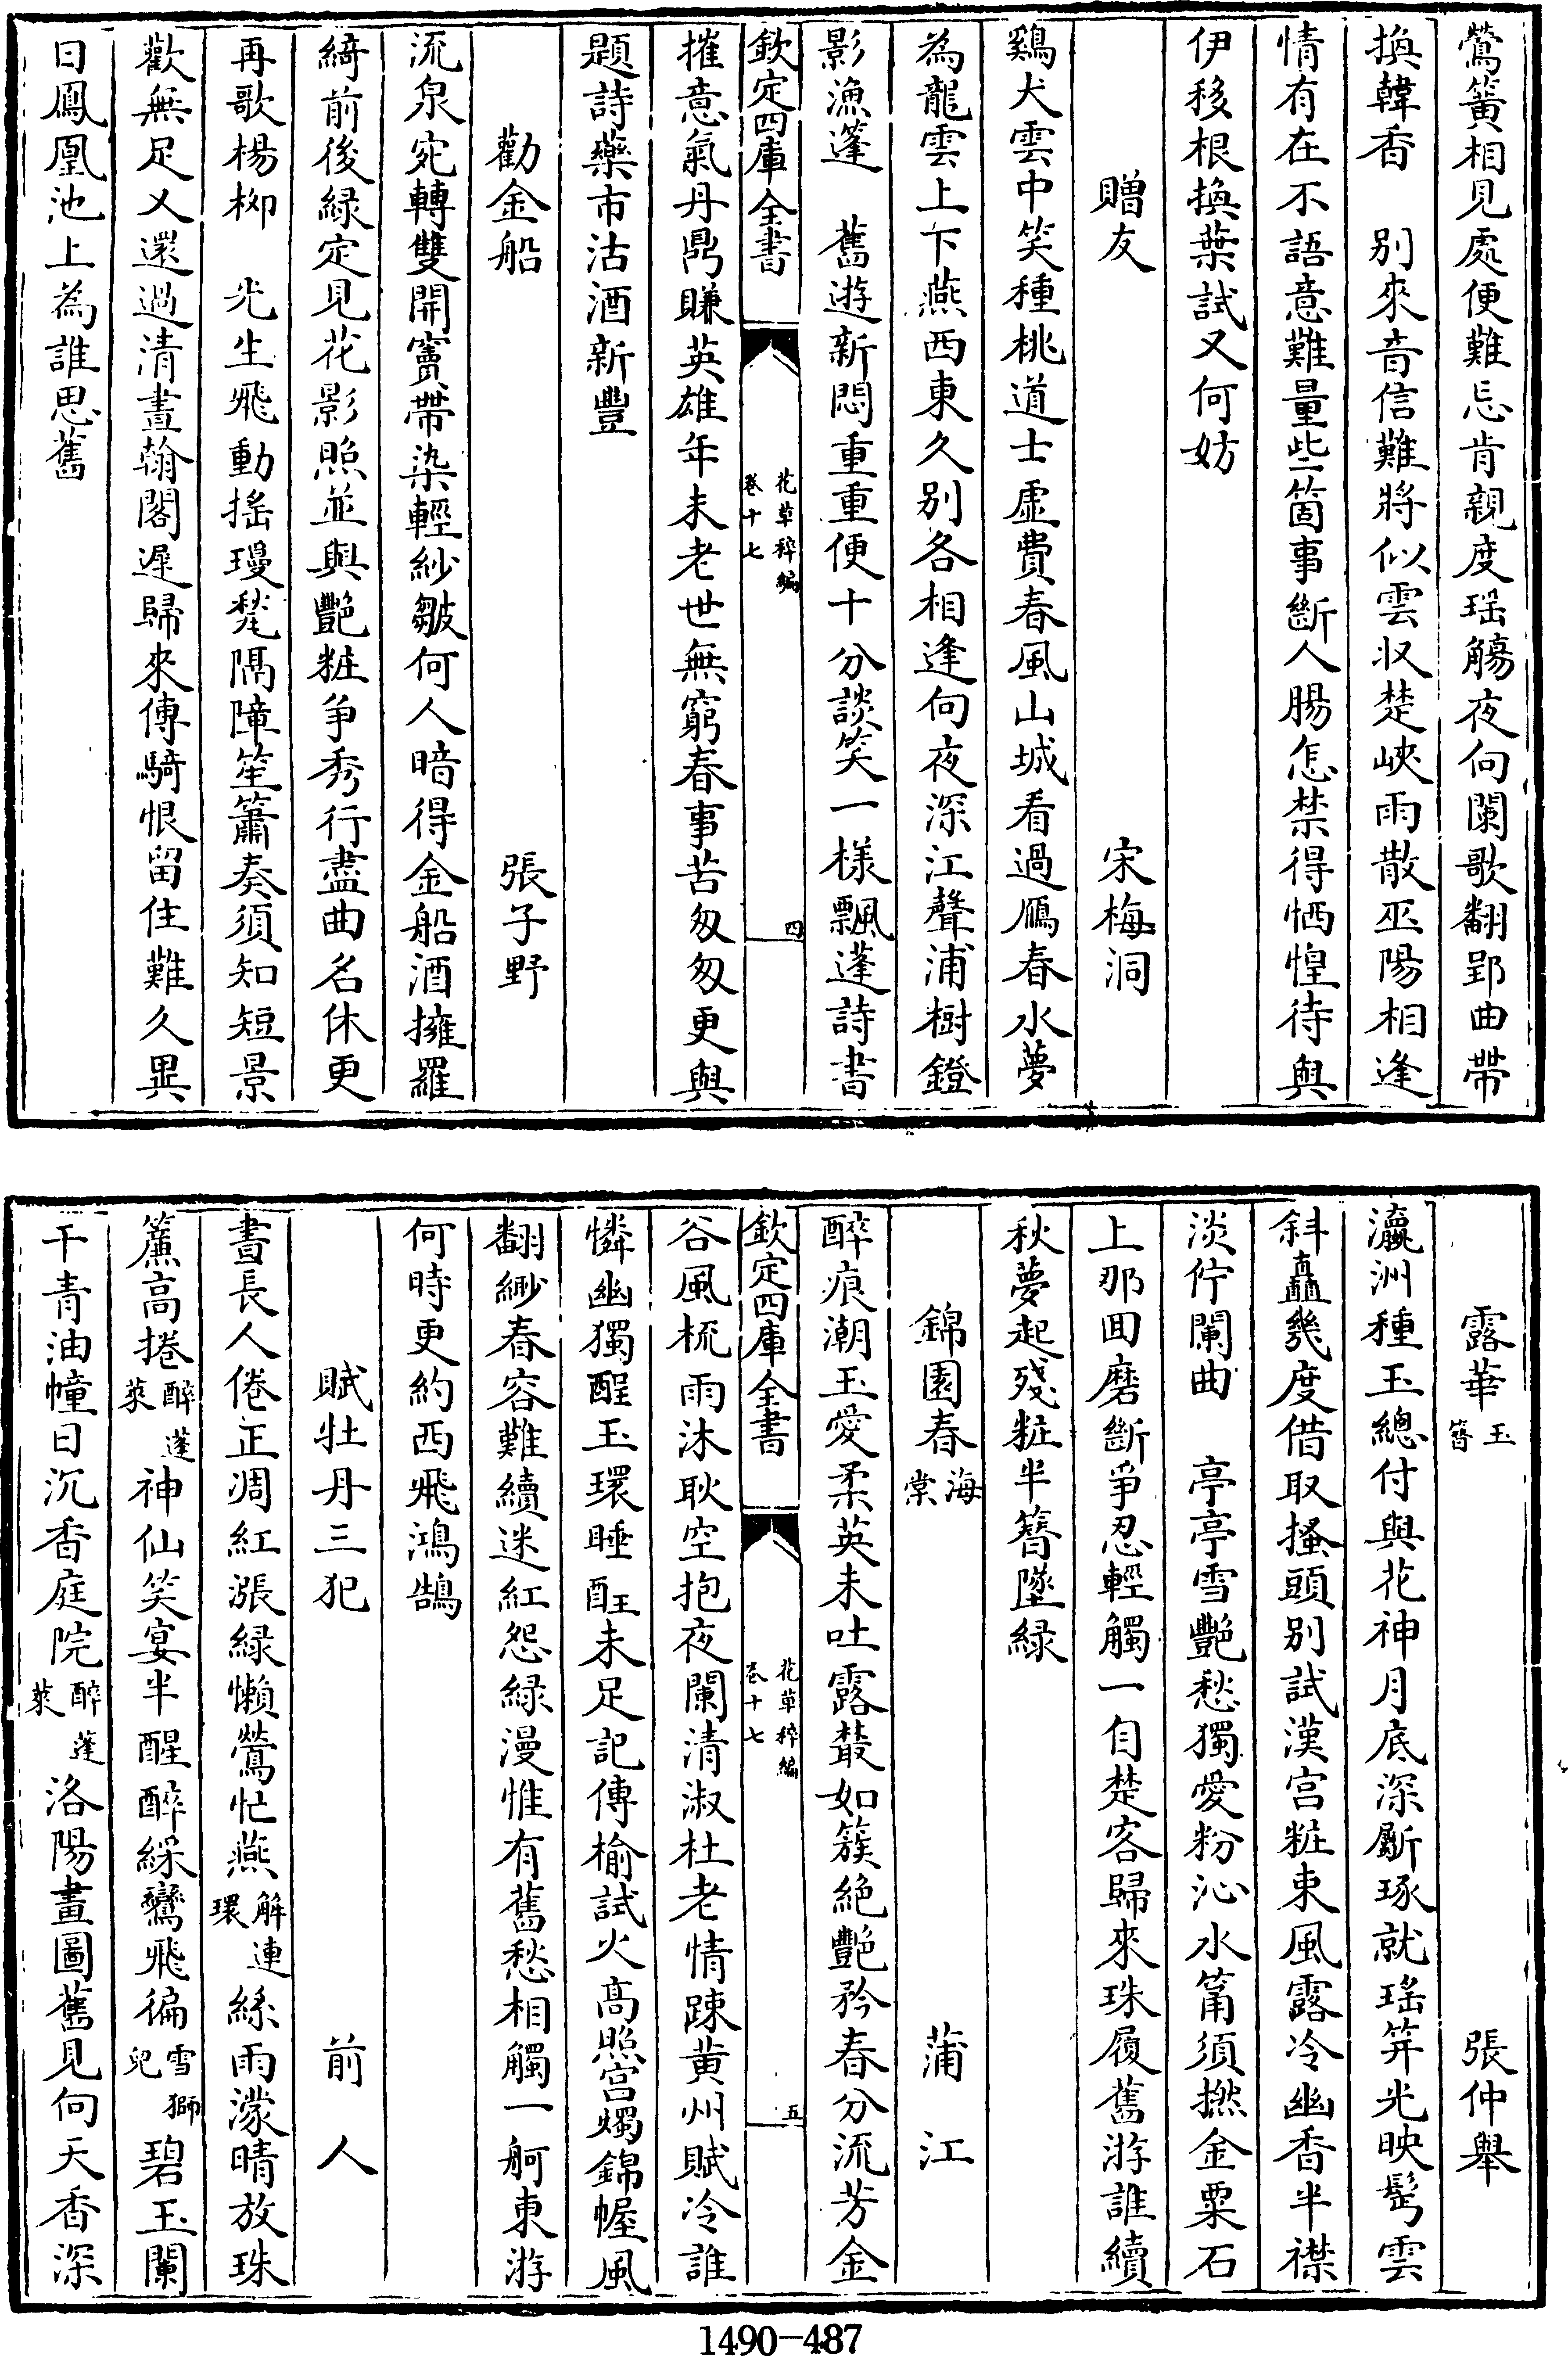 鶯簧相見處便難忘肯親度瑶觴夜向闌歌翻郢曲帶
換韓香　別來音信難將似雲收楚峽雨散巫陽相逢
情有在不語意難量些箇事斷人腸怎禁得恓惶待與
伊移根換葉試又何妨
贈友　宋梅洞
鷄犬雲中笑種桃道士虛費春風山城看過鴈春水夢
為龍雲上下燕西東久別各相逢向夜深江聲浦樹鐙
影漁篷　舊遊新悶重重便十分談笑一樣飄蓬詩書
欽定四庫全書　花草稡編　卷十七　四
摧意氣丹鼎賺英雄年未老世無窮春事苦匆匆更與
題詩藥市沽酒新豐
勸金船　張子野
流泉宛轉雙開竇帶染輕紗皺何人暗得金船酒擁羅
綺前後緑定見花影照並與艷粧爭秀行盡曲名休更
再歌楊柳　光生飛動摇瓊甃隔障笙簫奏須知短景
歡無足又還過清晝翰閣遲歸來傳騎恨留住難久異
日鳳凰池上為誰思舊
露華玉簪　張仲舉
瀛洲種玉總付與花神月底深斸琢就瑤笄光映髩雲
斜矗幾度借取搔頭別試漢宮粧束風露冷幽香半襟
淡佇闌曲　亭亭雪艷愁獨愛粉沁水筩須撚金粟石
上那回磨斷爭忍輕觸一自楚客歸來珠履舊游誰續
秋夢起殘粧半簪墜緑
錦園春海棠　蒲江
醉痕潮玉愛柔英未吐露叢如簇絶艷矜春分流芳金
谷風梳雨沐耿空抱夜闌清淑杜老情踈黄州賦冷誰
欽定四庫全書　花草稡編　卷十七　五
憐幽獨酲玉環睡䣭未足記傳榆試火髙照宫燭錦幄風
翻緲春容難續迷紅怨緑漫惟有舊愁相觸一舸東游
何時更約西飛鴻鵠
賦牡丹三犯　前人
晝長人倦正凋紅漲緑懶鶯忙燕解連環絲雨濛晴放珠
簾高捲醉蓬萊神仙笑宴半醒醉綵鸞飛徧雪獅兒碧玉闌
干青油幢日沉香庭院醉蓬萊洛陽畫圖舊見向天香深
1490-487